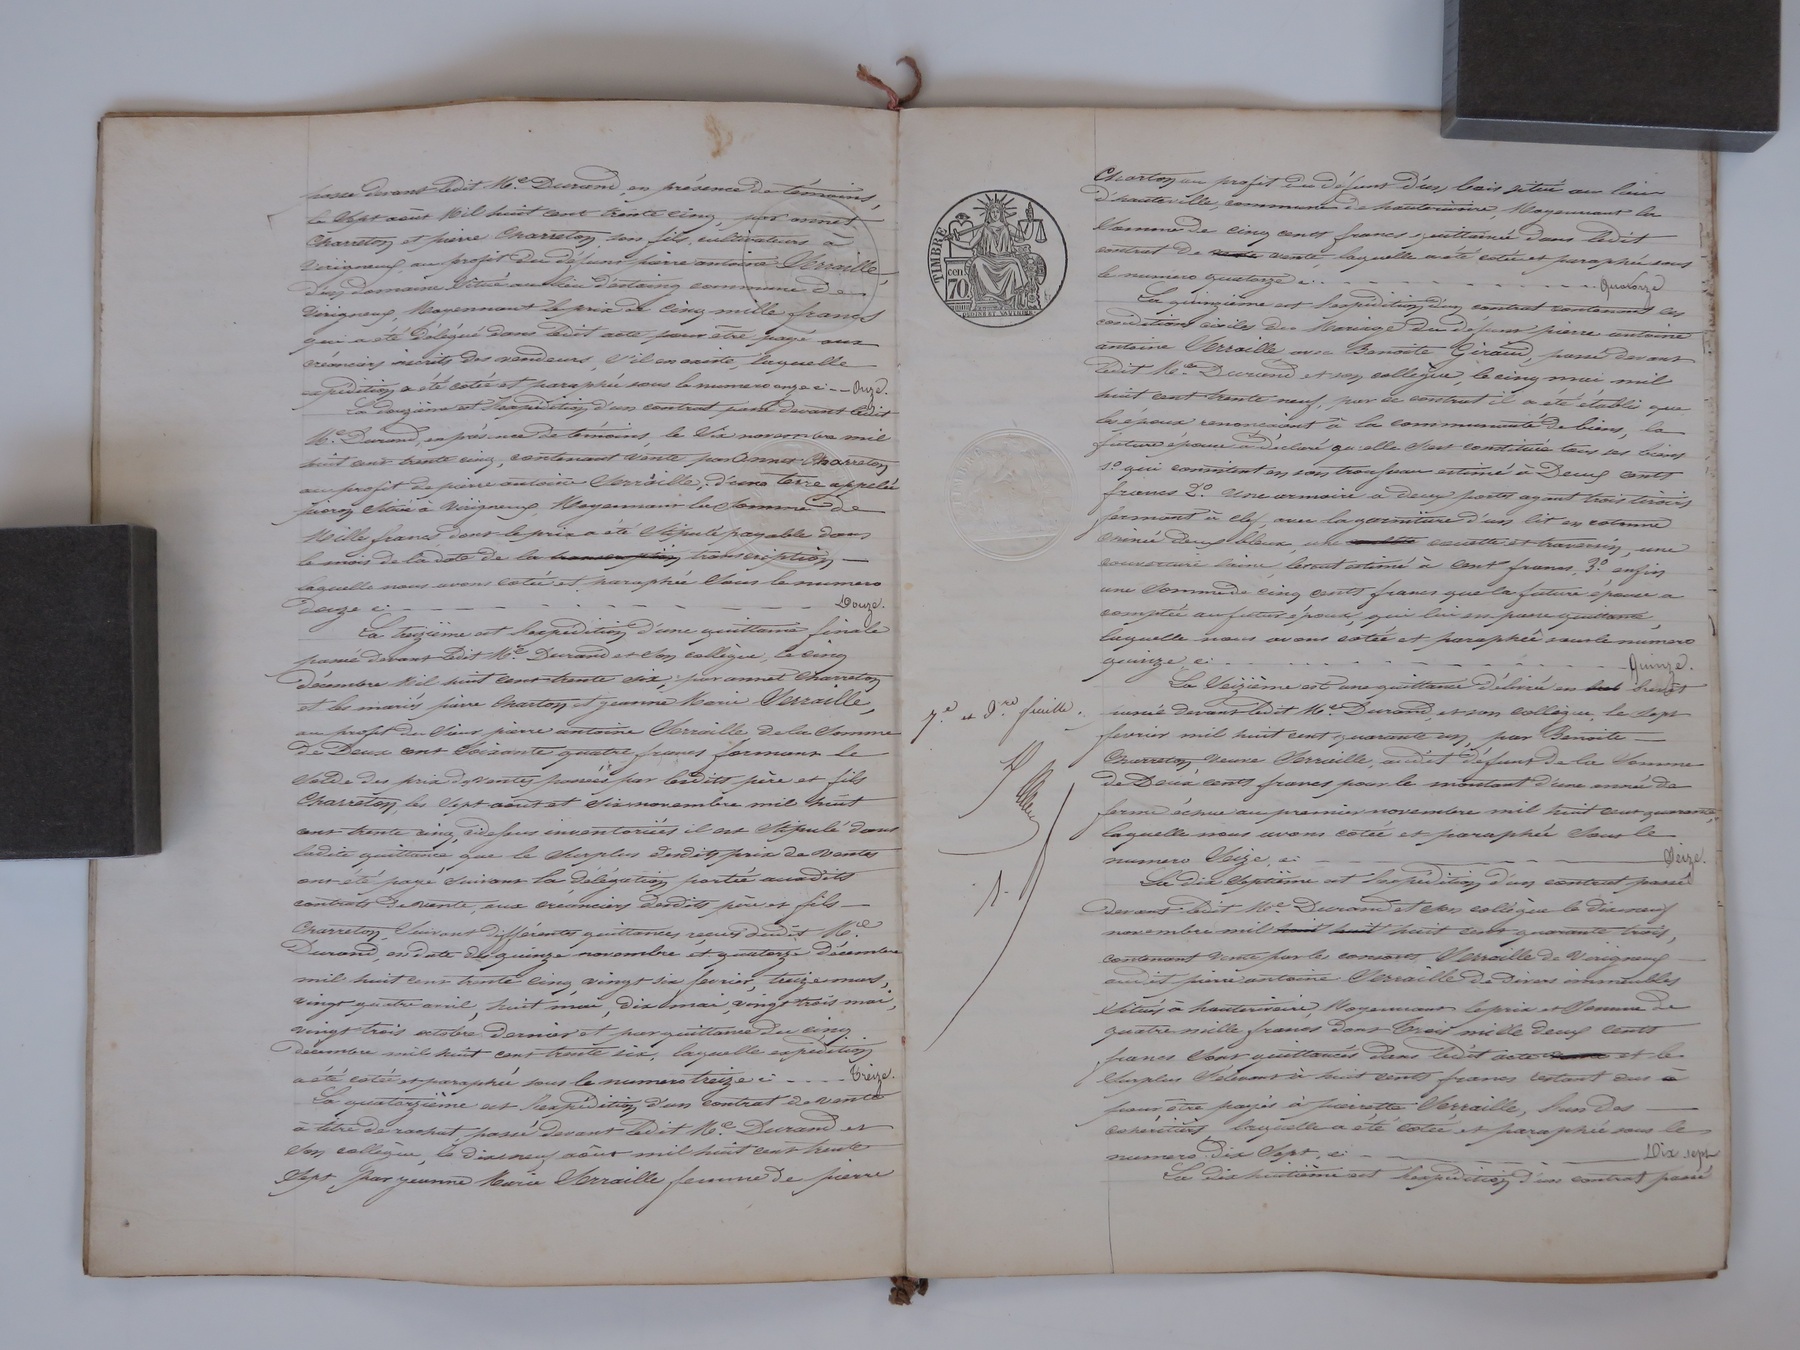 passé devant ledit Me. Durand en présence de témoins,
le Sept août Mil huit cent trente cinq, par annet
Charreton et pierre Charreton, son fils, cultivateurs à
Verigneux, au profit du défunt pierre antoine Verraille
d'un domaine situé au lieu d'estaing commune de
Verigneux, Moyennant le prix de Cinq mille francs
qui a été délégué dans ledit acte pour être payé aux
créanciers inscrits des vendeurs, s'il en existe, laquelle
expédition a été cotée et paraphée sous le numero onze ci - - Onze.
La douzième est l'expédition d'un contrat passé devant ledit
Me. Durand, en présence de témoins, le Six novembre mil
huit cent trente cinq, contenant vente par annet Charreton
au profit de pierre antoine Verraille, d'une terre appelée
située à Verigneux, Moyennant la Somme de
Mille francs dont le prix a été Stipulé payable dans
le mois de la date de la transcription transcription —
laquelle nous avons cotée et paraphée Sous le numero
douze ci - - - - - - - - - Douze.
La treizième est l'expédition d'une quittance finale
passée devant ledit Me. Durand et son collègue, le cinq
décembre Mil huit cent trente six, par annet Charreton
et les mariés pierre Charton et jeanne Marie Verraille,
au profit du Sieur pierre antoine Verraille de la Somme
de Deux cent Soixante quatre francs formant le
Solde des prix de Ventes passées par lesdits père et fils
Charreton, les Sept août et Six novembre mil huit
cent trente cinq, ci dessus inventoriées il est Stipulé dans
ladite quittance que le Surplus desdits prix de Ventes
ont été payé Suivant la délégation portée auxdits
contrats de vente, aux créanciers desdits père et fils —
Charreton, Suivant différentes quittances reçues dudit Me.
Durand, en date des quinze novembre et quatorze décembre
mil huit cent trente cinq, vingt six fevrier, treize mars,
vingt quatre avril, huit mai, dix mai, vingt trois mai,
vingt trois octobre dernier et par quittance du cinq
décembre mil huit cent trente six, laquelle expédition
a été cotée et paraphée sous le numero treize ci - - - - Treize.
La quatorzième est l'expédition d'un contrat de vente
à titre de rachat passé devant ledit Me. Durand et
Son collègue, le dix neuf août mil huit cent trente
Sept par jeanne Marie Verraille femme de pierre
TIMBRE
cen
70
7.e et D.re feuille.
Charton au profit du défunt d'un bois situé au lieu
d'hauteville, commune de hauterivoire, Moyennant la
Somme de cinq cents francs quittancée dans ledit
contrat de vente, laquelle a été cotée et paraphée sous
le numero quatorze ci - - - - - - - - Quatorze
La quinzième est l'expédition d'un contrat contenant les
conditions civiles du Mariage du défunt pierre antoine
antoine Verraille avec Benoite Giraud, passé devant
ledit Me. Durand et son collègue, le cinq mai mil
huit cent trente neuf, par ce contrat il a été établi que
les époux renonçaient à la communauté de biens, la
future épouse a déclaré qu'elle s'est constitué tous ses biens
1.o qui consistent en son trousseau estimé à Deux cents
francs 2.o Une armoire a deux portes ayant trois tiroirs
fermant à clef, avec la garniture d'un lit en cotonne
bleux, une couette et traversin, une
couverture laine, le tout estimé à cent francs, 3.o enfin
une Somme de cinq cents francs que la future épouse a
comptée au futur époux, qui lui en passe quittance,
laquelle nous avons cotée et paraphée sous le numero
quinze, ci - - - - - - - - - - Quinze.
La Seizième est une quittance délivrée en brevet
passée devant ledit Me. Durand et son collègue, le sept
fevrier mil huit cent quarante un, par Benoite —
Charreton veuve Verraille, audit défunt de la Somme
de Deux cents francs pour le montant d'une année de
ferme échue au premier novembre mil huit cent quarante,
laquelle nous avons cotée et paraphée Sous le
numero Seize, ci - - - - - - - - Seize.
La dix Septième est l'expédition d'un contrat passé
devant ledit Me. Durand et Son collègue le dix neuf
novembre mil huit huit huit cent quarante trois,
contenant vente par les consorts Verraille de Verigneux —
audit pierre antoine Verraille de Divers immeubles
Situés à hauterivoire, Moyennant le prix et Somme de
quatre mille francs dont Trois mille deux cents
francs Sont quittancés dans ledit acte et le
Surplus S'élevant à huit cents francs restant dus à
pour être payés à pierrette Verraille, l'un des —
cohéritiers laquelle a été cotée et paraphée sous le
numero Dix Sept, ci - - - - - - - Dix sept
La dix huitième est l'expédition d'un contrat passé